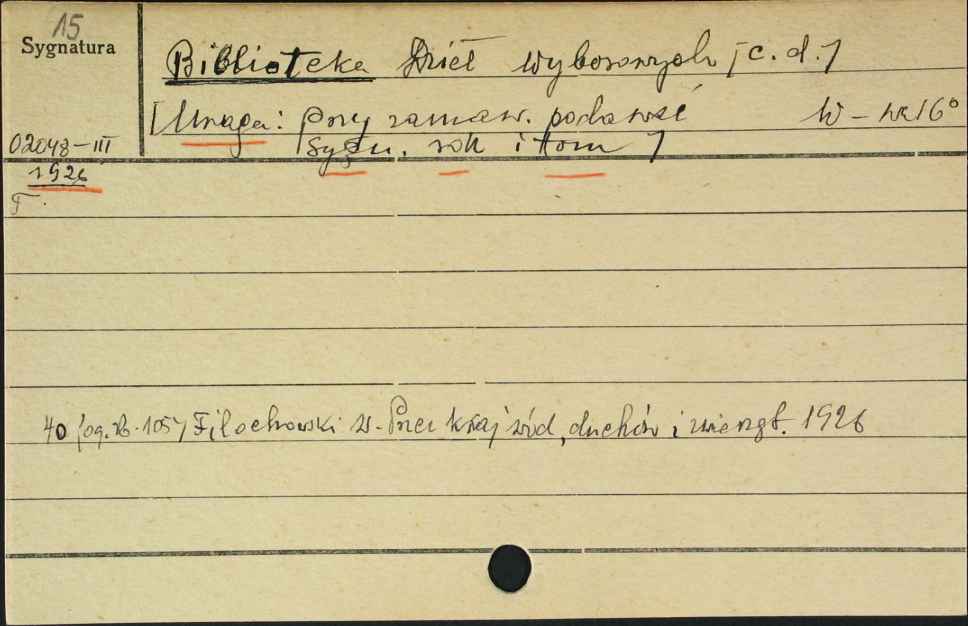 15
Sygnatura
Biblioteka Dzieł Wyborowych [c. d.]
[Uwaga: Przy zamaw. podawać W - wa 16°
02048-III sygn. rok i tom]
1926
T.
40 [og. zb. 105] Filochowski W. Przez kraj wód, duchów i zwierząt. 1926